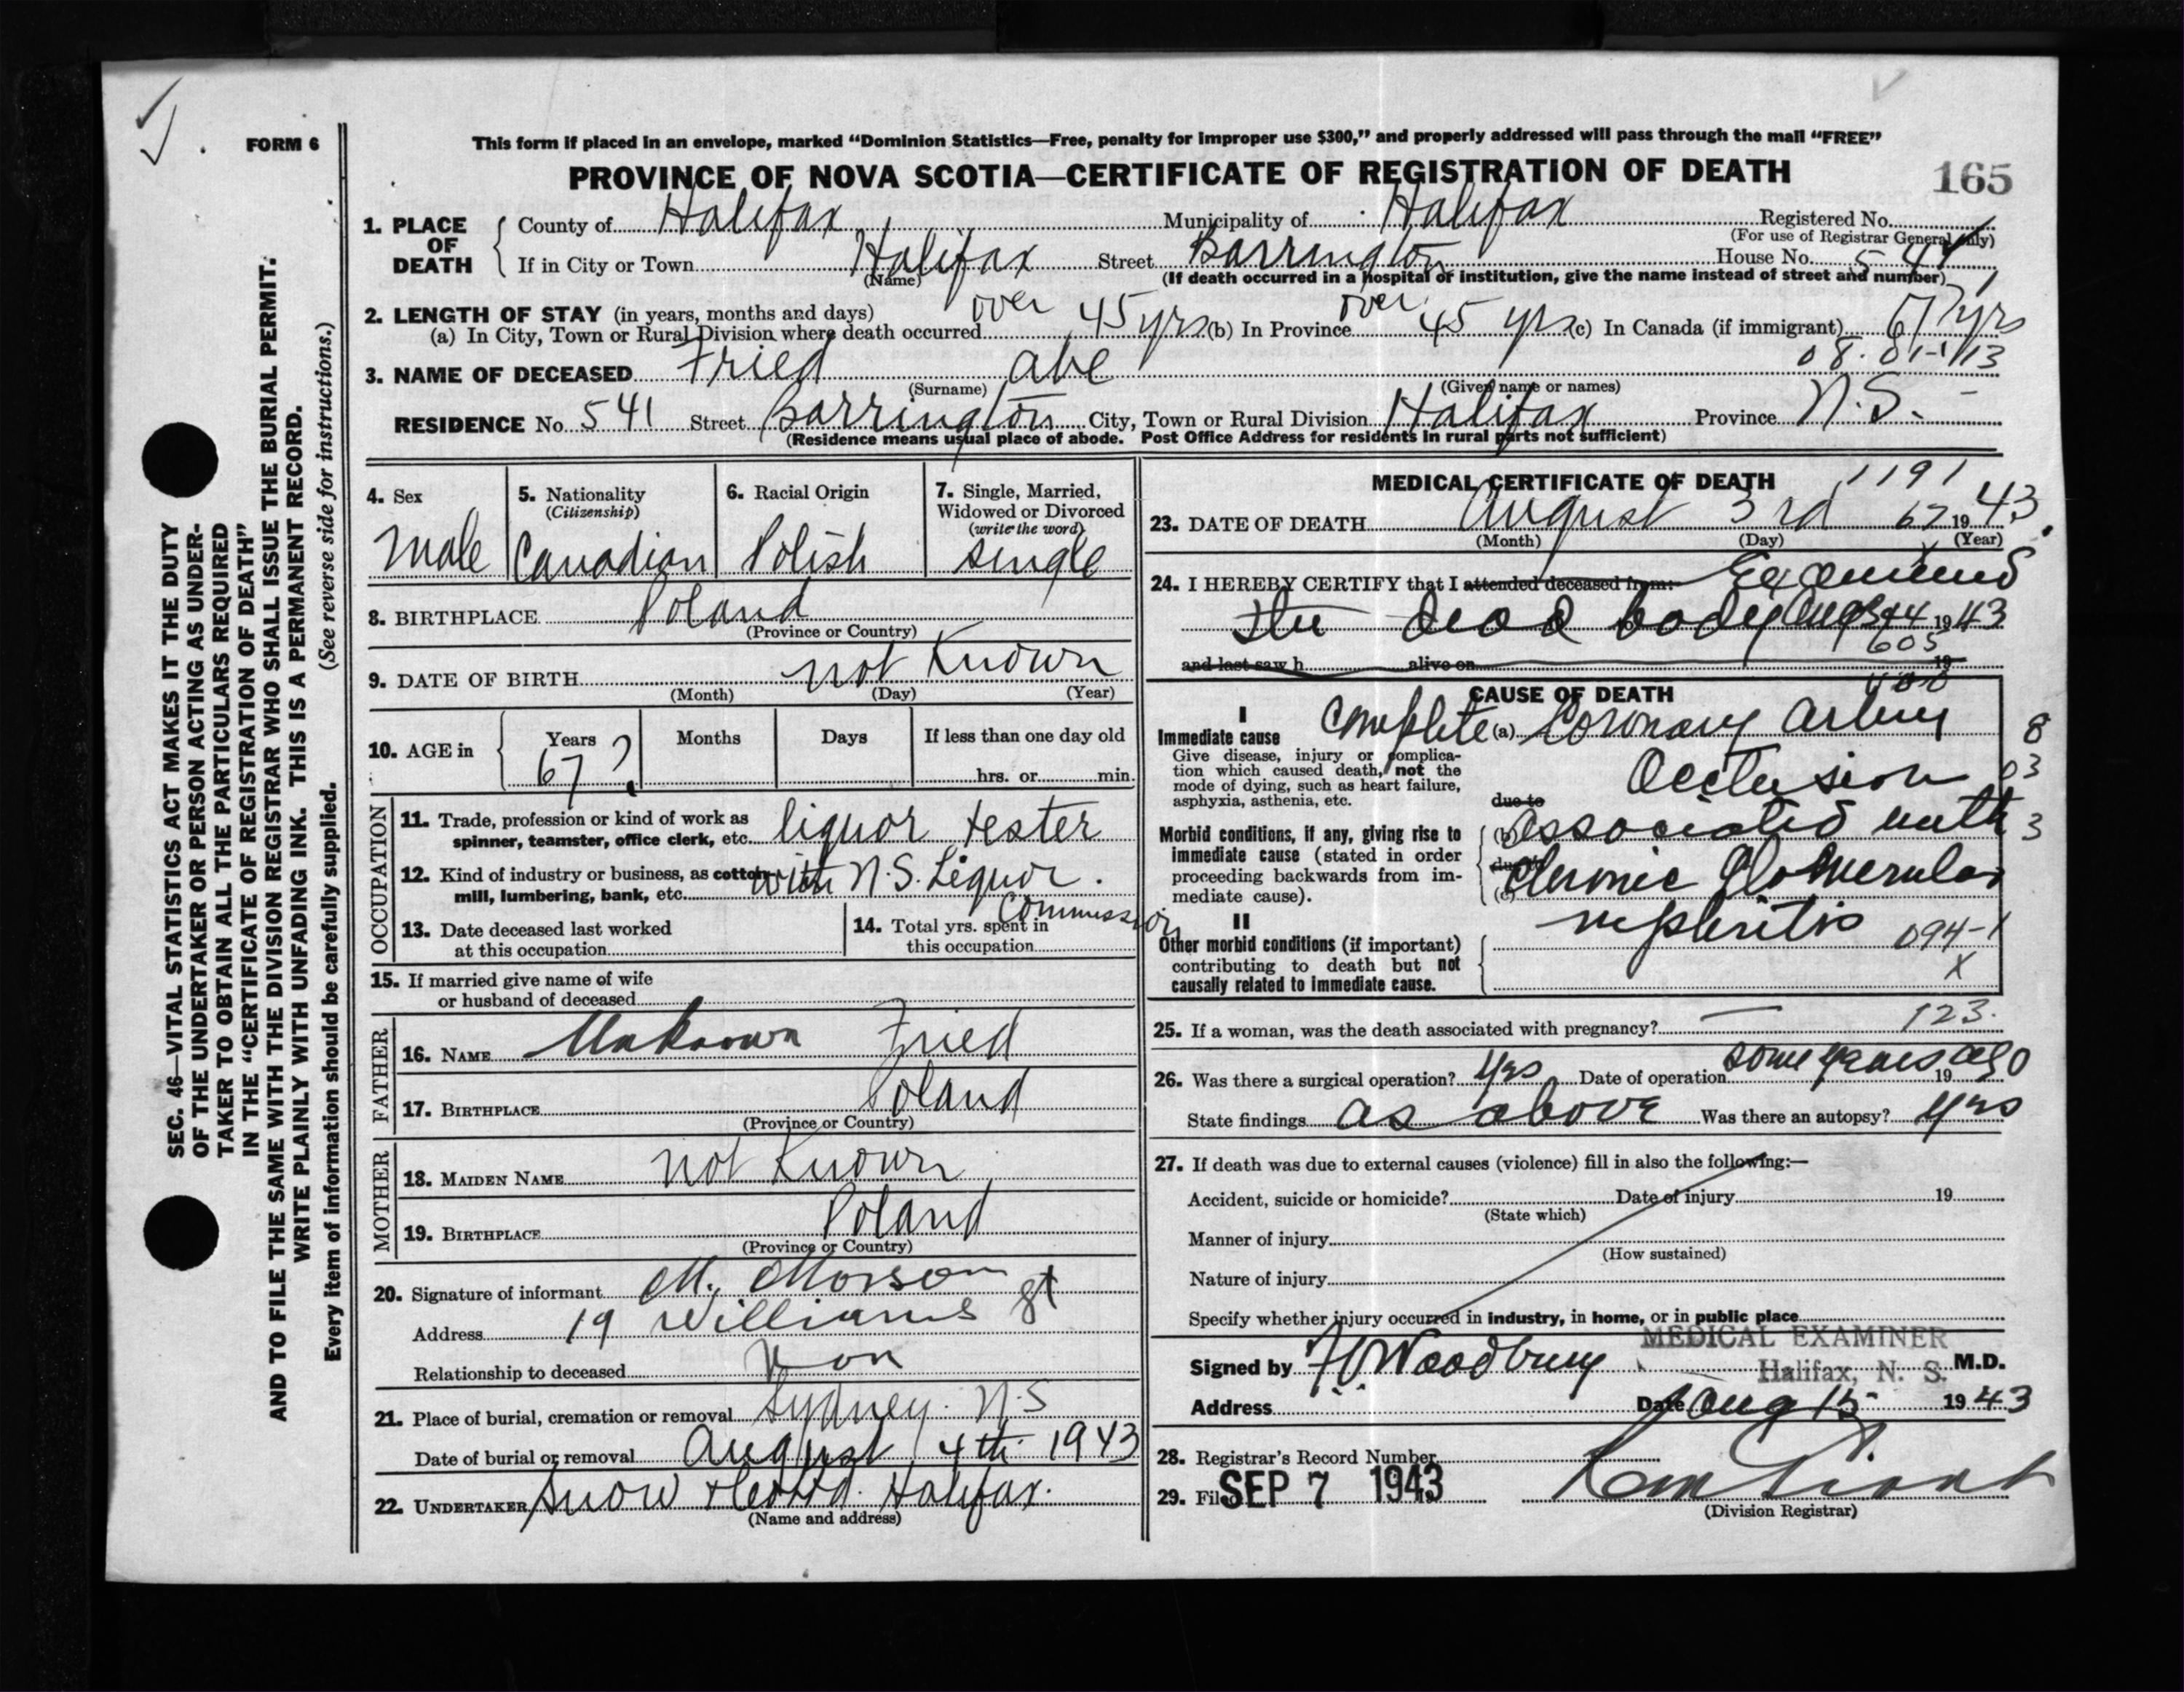 This form if placed in an envelope, marked “Dominion Statistics—Free, penalty for improper use $300,” and properly addressed will pass through the mail “FREE”
FORM 6
PROVINCE OF NOVA SCOTIA—CERTIFICATE OF REGISTRATION OF DEATH
165
1. PLACE OF DEATH
County of Halifax Municipality of Halifax Registered No.
(For use of Registrar General only)
If in City or Town Halifax Street Barrington House No. 541
(Name) (If death occurred in a hospital or institution, give the name instead of street and number)
2. LENGTH OF STAY (in years, months and days)
(a) In City, Town or Rural Division where death occurred over 45 yrs (b) In Province over 45 yrs (c) In Canada (if immigrant) 67 yrs
3. NAME OF DECEASED Fried Abe
(Surname) (Given name or names)
RESIDENCE No. 541 Street Barrington City, Town or Rural Division Halifax Province N.S.
(Residence means usual place of abode. Post Office Address for residents in rural parts not sufficient)
4. Sex
Male
5. Nationality
(Citizenship)
Canadian
6. Racial Origin
Polish
7. Single, Married,
Widowed or Divorced
(write the word)
single
8. BIRTHPLACE Poland
(Province or Country)
9. DATE OF BIRTH not known
(Month) (Day) (Year)
10. AGE in
Years Months Days If less than one day old
67? hrs. or min.
OCCUPATION
11. Trade, profession or kind of work as
spinner, teamster, office clerk, etc. liquor tester
12. Kind of industry or business, as cotton
mill, lumbering, bank, etc. with N.S. Liquor Commission
13. Date deceased last worked
at this occupation
14. Total yrs. spent in
this occupation
15. If married give name of wife
or husband of deceased
FATHER
16. NAME Unknown Fried
17. BIRTHPLACE Poland
(Province or Country)
MOTHER
18. MAIDEN NAME not known
19. BIRTHPLACE Poland
(Province or Country)
20. Signature of informant
Address 19 Williams St
Relationship to deceased Non
21. Place of burial, cremation or removal Sydney N.S
Date of burial or removal August 4th 1943
22. UNDERTAKER Snow & Co Ltd. Halifax.
(Name and address)
MEDICAL CERTIFICATE OF DEATH
1191
23. DATE OF DEATH August 3rd 1943
(Month) (Day) (Year)
24. I HEREBY CERTIFY that I attended deceased from: Examined
the dead body Aug 1943
605
and last saw h alive on 19
CAUSE OF DEATH
I
Immediate cause
Give disease, injury or complica-
tion which caused death, not the
mode of dying, such as heart failure,
asphyxia, asthenia, etc.
Complete (a) Coronary Artery
Occlusion
due to
Morbid conditions, if any, giving rise to
immediate cause (stated in order
proceeding backwards from im-
mediate cause).
(b) associated with
due to
(c) chronic Glomerular
nephritis
094-1
X
II
Other morbid conditions (if important)
contributing to death but not
causally related to immediate cause.
8
03
3
25. If a woman, was the death associated with pregnancy? — 123.
26. Was there a surgical operation? Yes Date of operation some years ago 19
State findings as above Was there an autopsy? Yes
27. If death was due to external causes (violence) fill in also the following:—
Accident, suicide or homicide? Date of injury 19
(State which)
Manner of injury
(How sustained)
Nature of injury
Specify whether injury occurred in industry, in home, or in public place
MEDICAL EXAMINER
Signed by Woodbury Halifax, N. S. M.D.
Address Date Aug 15 1943
28. Registrar's Record Number
29. Filed SEP 7 1943
(Division Registrar)
SEC. 46—VITAL STATISTICS ACT MAKES IT THE DUTY
OF THE UNDERTAKER OR PERSON ACTING AS UNDER-
TAKER TO OBTAIN ALL THE PARTICULARS REQUIRED
IN THE “CERTIFICATE OF REGISTRATION OF DEATH”
AND TO FILE THE SAME WITH THE DIVISION REGISTRAR WHO SHALL ISSUE THE BURIAL PERMIT.
WRITE PLAINLY WITH UNFADING INK. THIS IS A PERMANENT RECORD.
Every item of information should be carefully supplied. (See reverse side for instructions.)